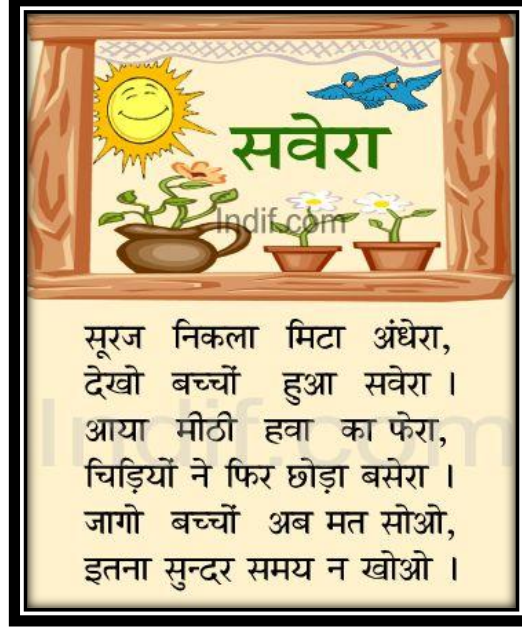 सवेरा
Indif.com
सूरज निकला मिटा अंधेरा,
देखो बच्चों हुआ सवेरा ।
आया मीठी हवा का फेरा,
चिड़ियों ने फिर छोड़ा बसेरा ।
Indif.com
जागो बच्चों अब मत सोओ,
इतना सुन्दर समय न खोओ ।